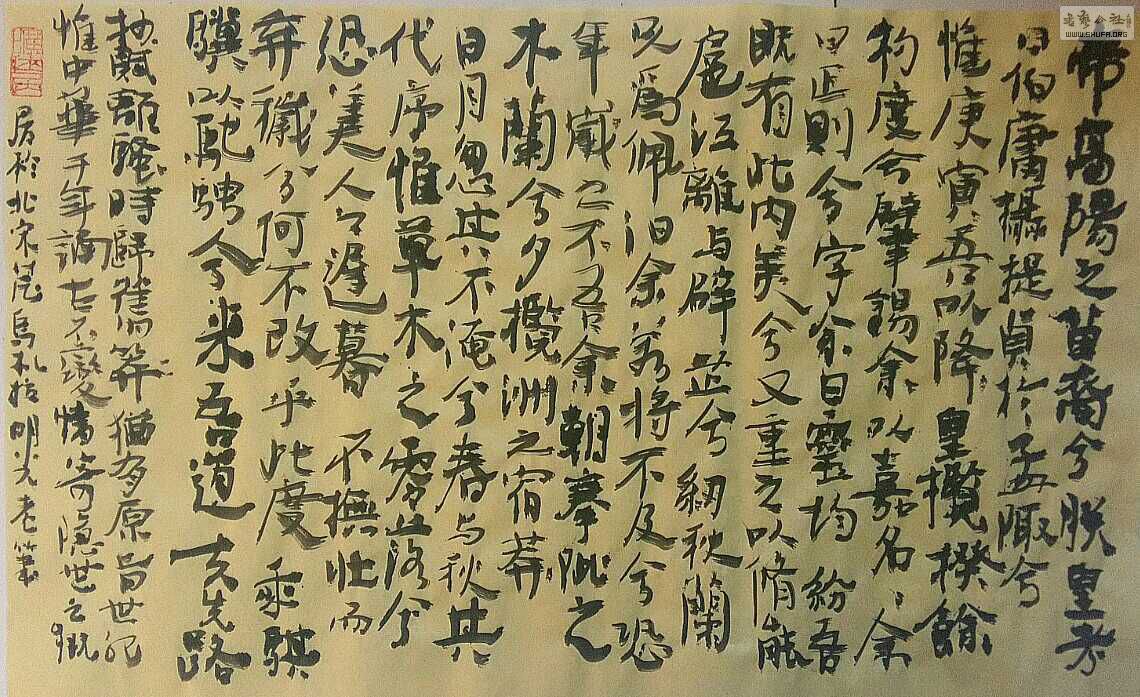 帝高陽之苗裔兮朕皇考
曰伯庸攝提貞於孟陬兮
惟庚寅吾以降皇攬揆余
初度兮肇錫余以嘉名名余
曰正則兮字余曰靈均紛吾
既有此內美兮又重之以脩能
扈江離與辟芷兮紉秋蘭
以為佩汩余若將不及兮恐
年歲之不吾余朝搴阰之
木蘭兮夕攬洲之宿莽
日月忽其不淹兮春與秋其
代序惟草木之零落兮
恐美人之遲暮不撫壯而
棄穢兮何不改乎此度乘騏
驥以馳騁兮來吾道夫先路
抄賦離騷時歸舊 猶有原旨世
惟中華千年誦古不變情寄隱世之
居於北宋 明 老筆
書藝公社
WWW.SHUFA.ORG